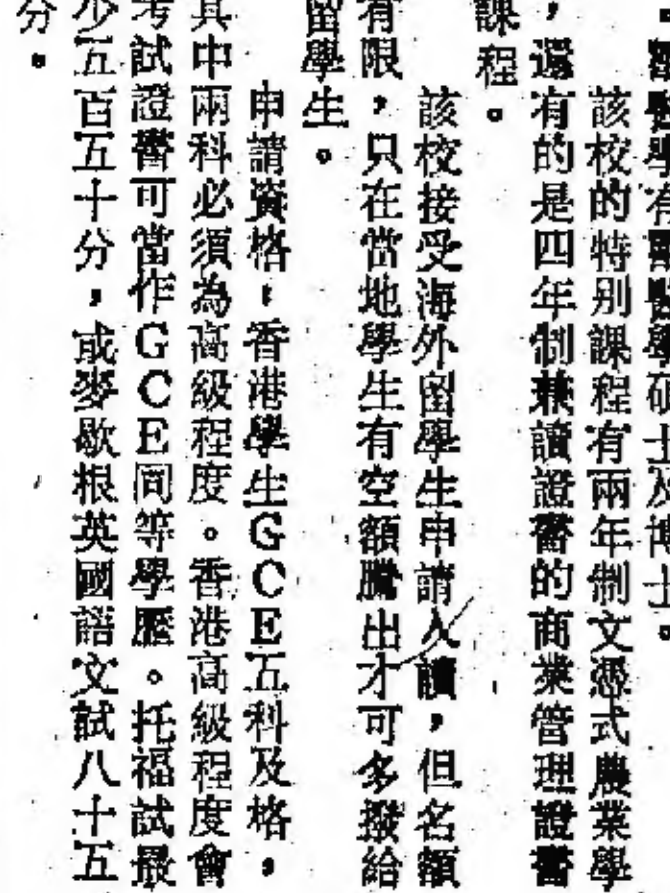 獸醫學有獸醫學碩士及博士。
該校的特別課程有兩年制文憑式農業學
，還有的是四年制兼讀證書的商業管理證書
課程。
該校接受海外留學生申請入讀，但名額
有限，只在當地學生有空額騰出才可多撥給
留學生。
申請資格，香港學生GCE五科及格，
其中兩科必須為高級程度。香港高級程度會
考試證書可當作GCE同等學歷。托福試最
少五百五十分，或麥歇根英國語文試八十五
分。